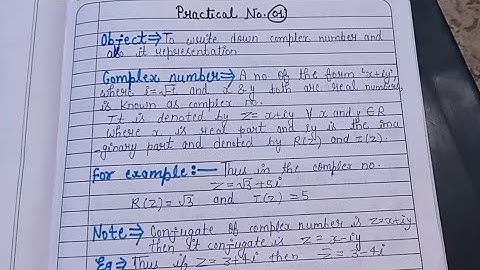 Practical No. 01
Object⇒ To write down complex number and
also it representation
Complex number⇒ A no of the form 'x+iy',
where i=√-1 and x & y both are real numbers
is known as complex no.
It is denoted by Z= x+iy ∀ x and y ∈ R
where x is real part and iy is the ima
-ginary part and denoted by R(z) and I(z).
for example:— Thus in the complex no.
Z=√3+5i
R(Z)=√3 and I(Z)=5
Note⇒ Conjugate of complex number is z=x+iy
then it conjugate is z̄ = x-iy
Eg⇒ Thus if z=3+4i then z̄ = 3-4i